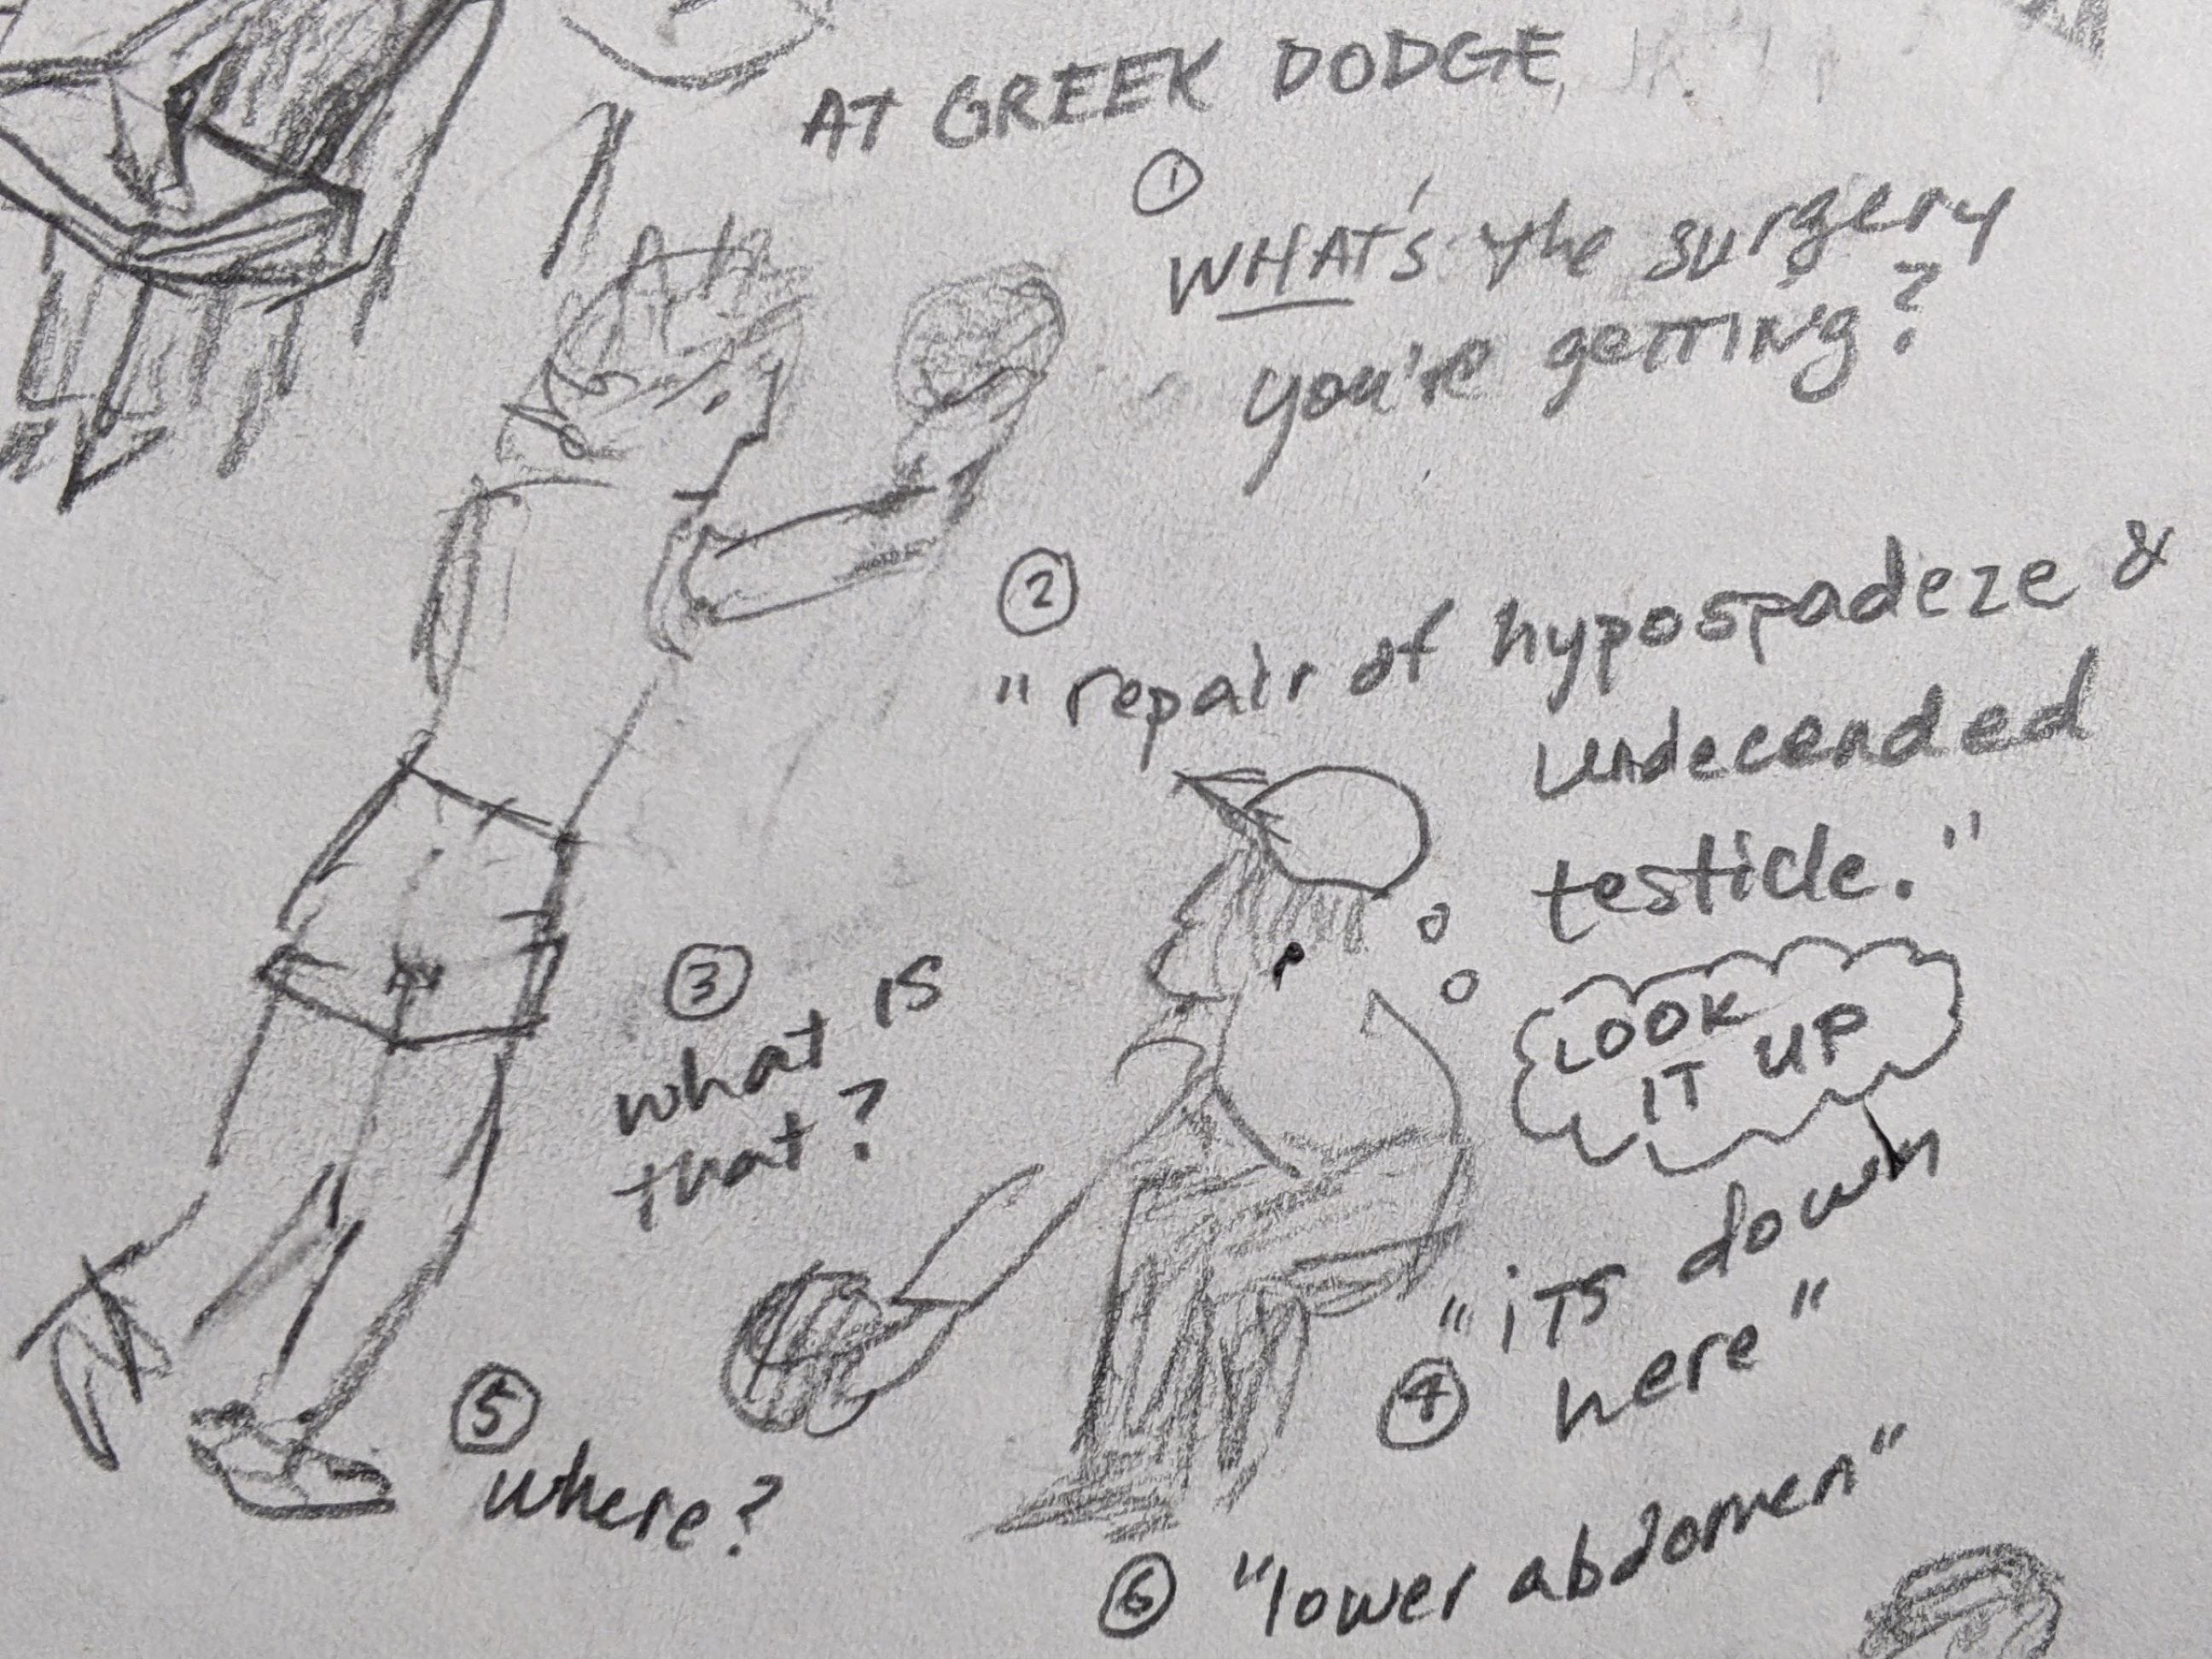 AT GREEK DODGE,
①
WHAT'S the surgery
you're geTTING?
②
"repair of hypospadeze &
undecended
testicle."
LOOK
IT UP
③
what is
that?
④
"iTs down
here"
⑤
where?
⑥ "lower abdomen"